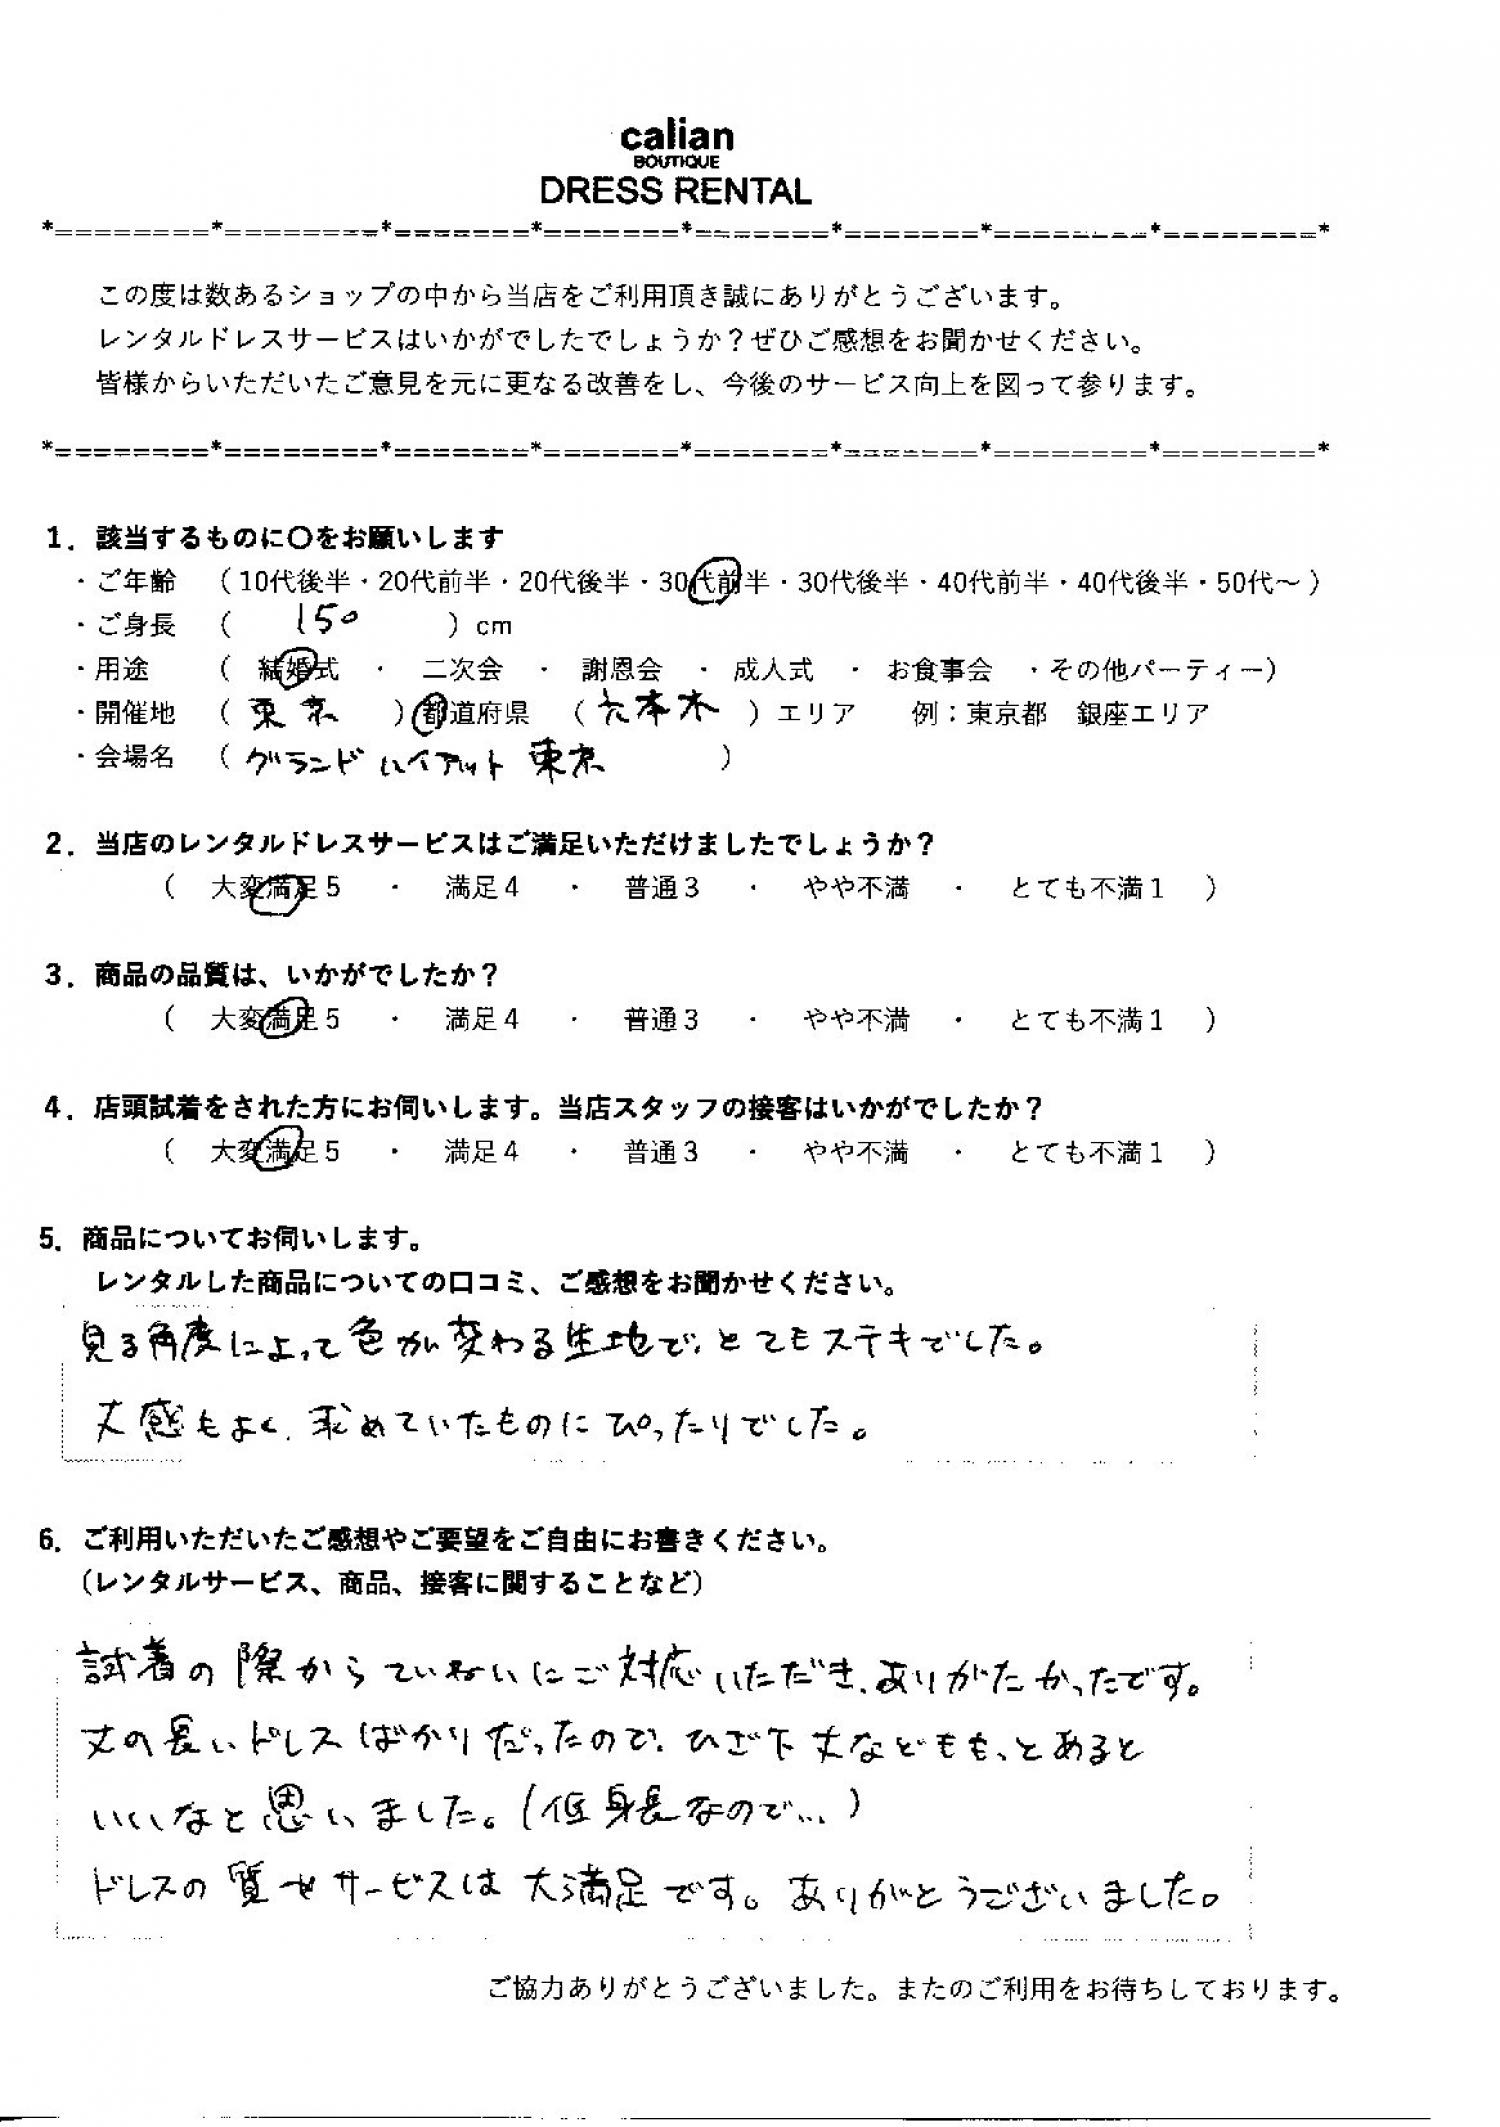 calian
BOUTIQUE
DRESS RENTAL
*========*========*=======*=======*=======*=======*========*========*
この度は数あるショップの中から当店をご利用頂き誠にありがとうございます。
レンタルドレスサービスはいかがでしたでしょうか？ぜひご感想をお聞かせください。
皆様からいただいたご意見を元に更なる改善をし、今後のサービス向上を図って参ります。
*========*========*=======*=======*=======*=======*========*========*
1．該当するものに〇をお願いします
・ご年齢　（10代後半・20代前半・20代後半・30代前半・30代後半・40代前半・40代後半・50代～）
・ご身長　（　150　）cm
・用途　（　結婚式　・　二次会　・　謝恩会　・成人式　・　お食事会　・その他パーティー）
・開催地　（東京　）都道府県　（六本木）エリア　例：東京都　銀座エリア
・会場名　（グランドハイアット東京　）
2．当店のレンタルドレスサービスはご満足いただけましたでしょうか？
（　大変満足5　・　満足4　・　普通3　・　やや不満　・　とても不満1　）
3．商品の品質は、いかがでしたか？
（　大変満足5　・　満足4　・　普通3　・　やや不満　・　とても不満1　）
4．店頭試着をされた方にお伺いします。当店スタッフの接客はいかがでしたか？
（　大変満足5　・　満足4　・　普通3　・　やや不満　・　とても不満1　）
5．商品についてお伺いします。
レンタルした商品についての口コミ、ご感想をお聞かせください。
見る角度によって色が変わる生地で、とてもステキでした。
丈感もよく、求めていたものにぴったりでした。
6．ご利用いただいたご感想やご要望をご自由にお書きください。
（レンタルサービス、商品、接客に関することなど）
試着の際からていねいにご対応いただき、ありがたかったです。
丈の長いドレスばかりだったので、ひざ下丈などももっとあると
いいなと思いました。（低身長なので…）
ドレスの質やサービスは大満足です。ありがとうございました。
ご協力ありがとうございました。またのご利用をお待ちしております。